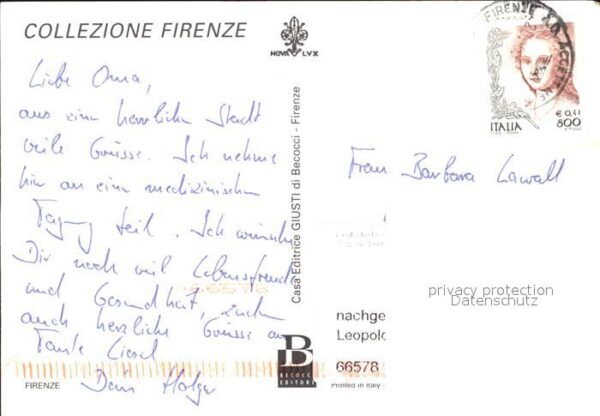 COLLEZIONE FIRENZE
NOVA LVX
Liebe Oma,
aus einer herrlichen Stadt
viele Grüsse. Ich nehme
hier an einer medizinischen
Tagung teil. Ich wünsche
Dir noch viel Lebensfreude
und Gesundheit,
auch herzliche Grüsse an
Tante Liesel
Dein Holger
FIRENZE
Casa Editrice GIUSTI di Becocci - Firenze
B
BECOCCI
EDITORE
FIRENZE
ITALIA
€ 0,41
800
Frau Barbara Lawall
privacy protection
Datenschutz
nachge
Leopold
66578
Printed in Italy -